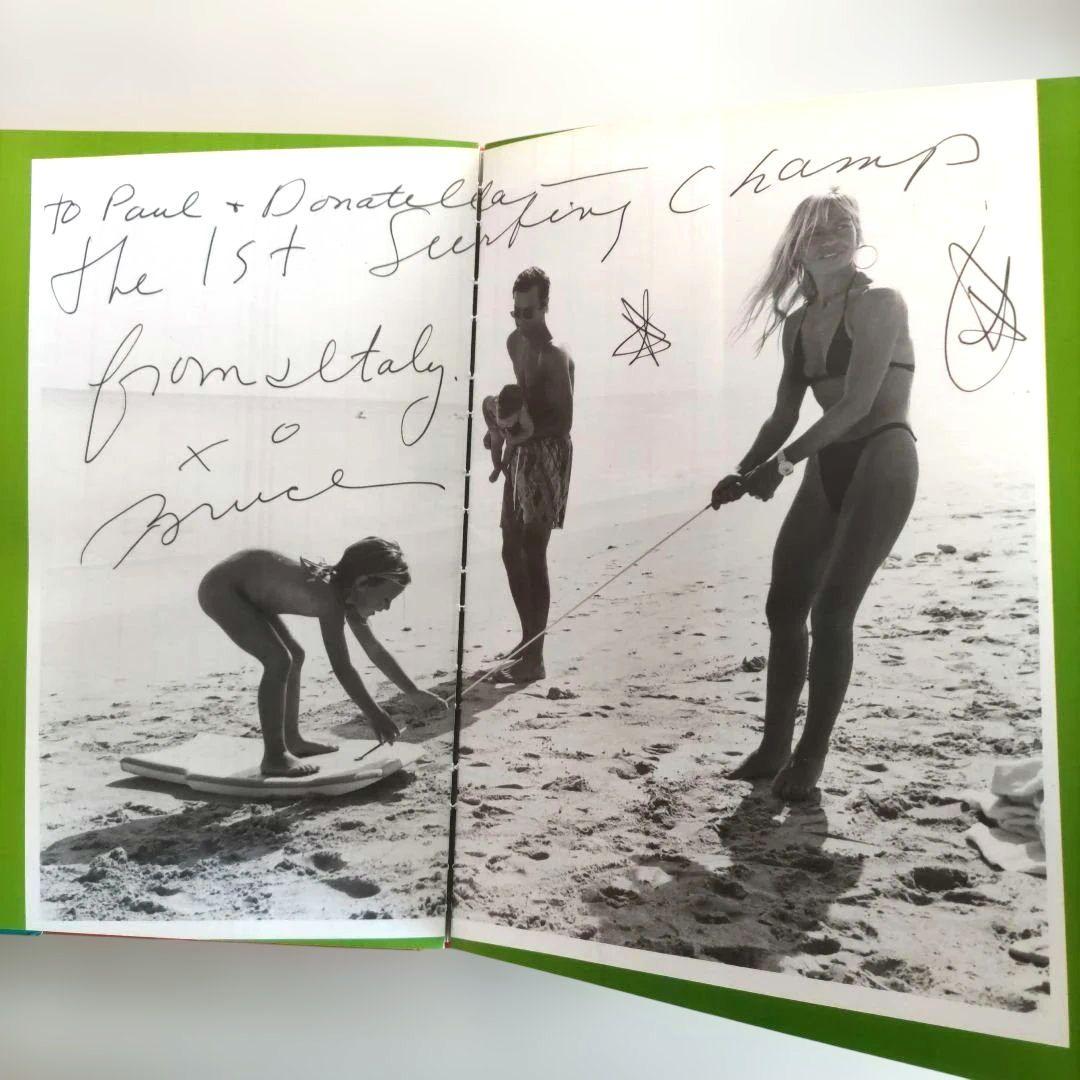 to Paul + Donatella
the 1st Surfing Champ
from Italy.
x o
Bruce